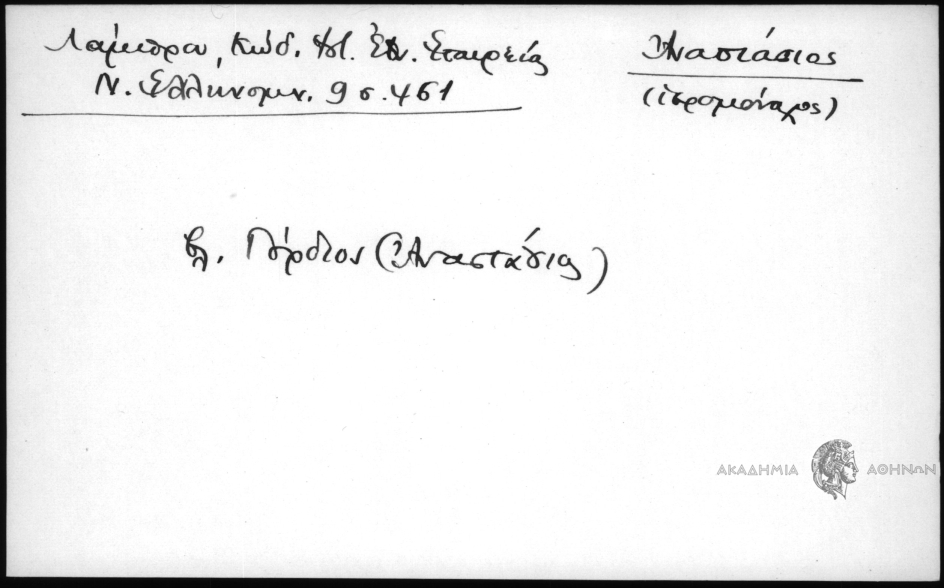 Λάμπρου, Κώδ. Ἱστ. Ἐθν. Ἑταιρείας
Ν. Ἑλληνομν. 9 σ. 451
Ἀναστάσιος
(ἱερομόναχος)
βλ. Γόρδιον (Ἀναστάσιον)
ΑΚΑΔΗΜΙΑ ΑΘΗΝΩΝ